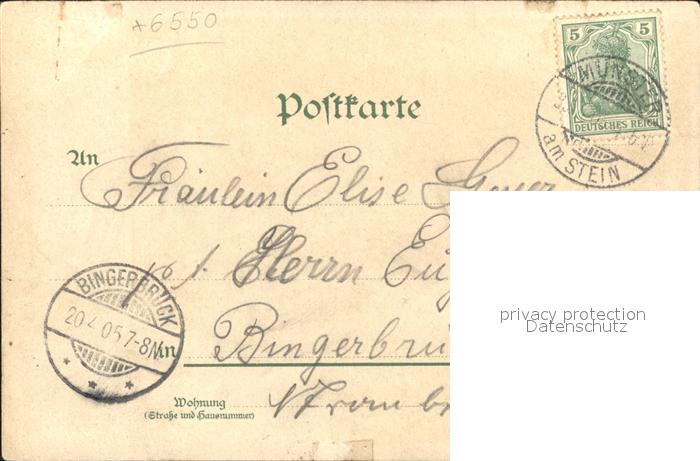 +6550
5 5
DEUTSCHES REICH
MÜNSTER
am STEIN
Postkarte
An
Fräulein Elise
Herrn
BINGERBRÜCK
20.4.05.7-8N.
in
Bingerbrü
Wohnung
(Straße und Hausnummer)
privacy protection
Datenschutz